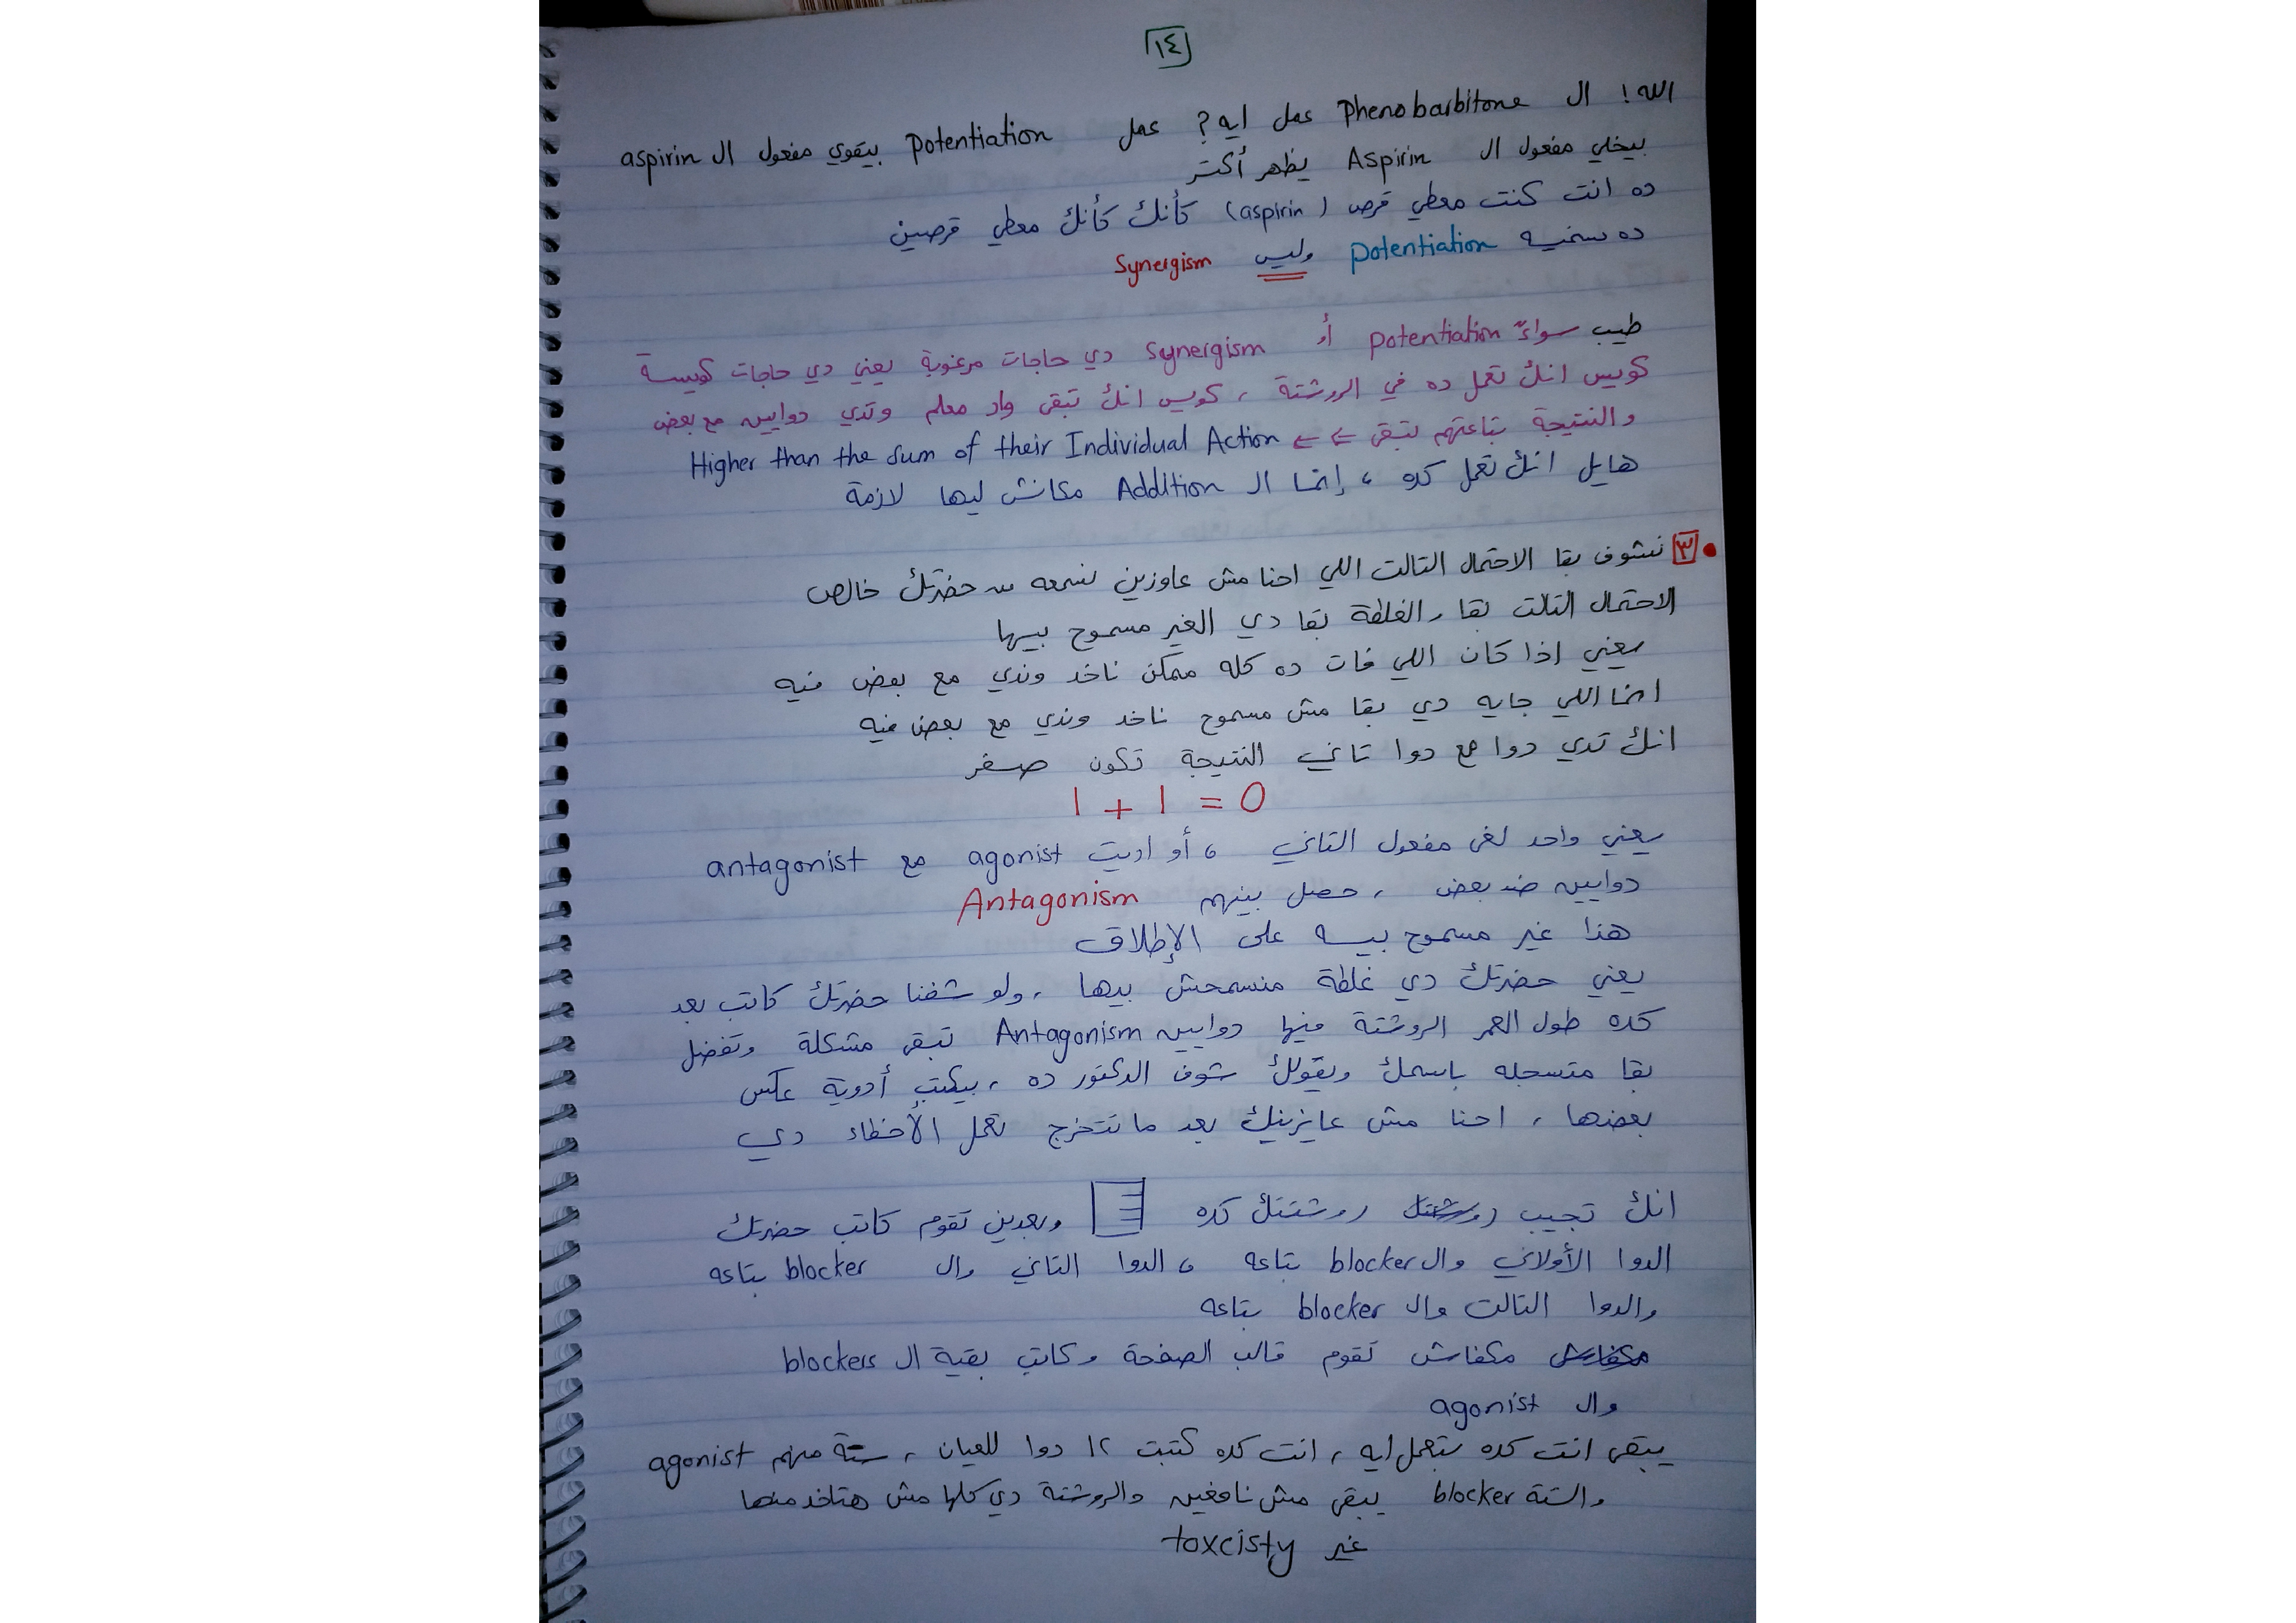 ١٤
الله! ال Phenobarbitone عمل ايه? عمل potentiation بيقوي مفعول ال aspirin
بيخلي مفعول ال Aspirin يظهر أكتر
ده انت كنت معطي قرص (aspirin) كأنك كأنك معطي قرصين
ده نسميه potentiation وليس Synergism
طيب سواءً potentiation أو synergism دي حاجات مرغوبة يعني دي حاجات كويسة
كويس انك تعمل ده في الروشتة ، كويس انك تبقى واد معلم وتدي دوايين مع بعض
والنتيجة بتاعتهم تبقى ⇐ ⇐ Higher than the sum of their Individual Action
هايل انك تعمل كده ، إنما ال Addition مكانش ليها لازمة
• ٣ نشوف بقا الاحتمال التالت اللي احنا مش عاوزين نسمعه من حضرتك خالص
الاحتمال التالت بقا ، الغلطة بقا دي الغير مسموح بيها
يعني اذا كان اللي فات ده كله ممكن ناخد وندي مع بعض فيه
انما اللي جايه دي بقا مش مسموح ناخد وندي مع بعض فيه
انك تدي دوا مع دوا تاني النتيجة تكون صفر
1 + 1 = 0
يعني واحد لغى مفعول التاني ، أو اديت agonist مع antagonist
دوايين ضد بعض ، حصل بينهم Antagonism
هذا غير مسموح بيه على الإطلاق
يعني حضرتك دي غلطة منسمحش بيها ، ولو شفنا حضرتك كاتب بعد
كده طول العمر الروشتة فيها دوايين Antagonism تبقى مشكلة وتفضل
بقا متسجله باسمك ويقولك شوف الدكتور ده ، بيكتب أدوية عكس
بعضها ، احنا مش عايزينك بعد ما تتخرج تعمل الأخطاء دي
انك تجيب روشتتك روشتتك كده وبعدين تقوم كاتب حضرتك
الدوا الأولاني وال blocker بتاعه ، الدوا التاني وال blocker بتاعه
والدوا التالت وال blocker بتاعه
مكفاش مكفاش تقوم قالب الصفحة وكاتب بقية ال blockers
وال agonist
يبقى انت كده بتعمل ايه ، انت كده كتبت ١٢ دوا للعيان ، ستة منهم agonist
والستة blocker يبقى مش نافعين والروشتة دي كلها مش هتاخد منها
غير toxcisty